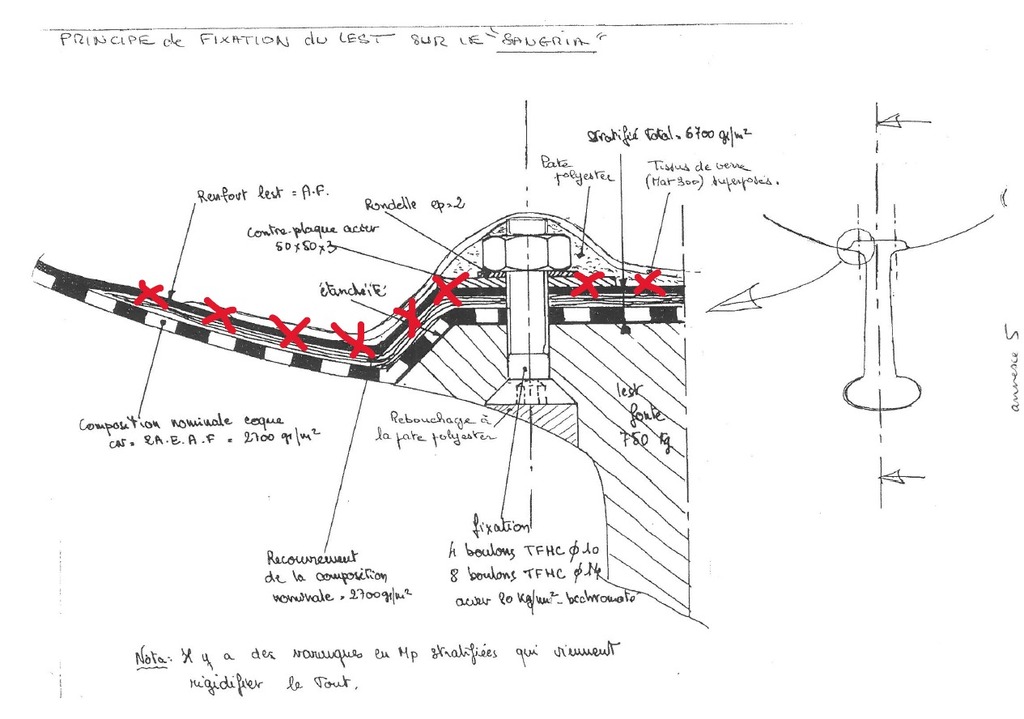 PRINCIPE de FIXATION du LEST SUR LE "SANGRIA"
stratifié total = 6700 gr/m²
Pate
polyester
Tissus de verre
(Mat 300) superposés.
Renfort lest = A.F.
Rondelle ep=2
contre-plaque acier
50x50x3
étanchéité
Composition nominale coque
= 2A.E.A.F = 2700 gr/m²
Rebouchage à
la pate polyester
lest
fonte
750 Kg
annexe 5
fixation
4 boulons TFHC ϕ 10
8 boulons TFHC ϕ 14
acier 80 Kg/mm² - bichromaté
Recouvrement
de la composition
nominale = 2700 gr/m²
Nota: Il y a des varangues en Mp stratifiées qui viennent
rigidifier le Tout.